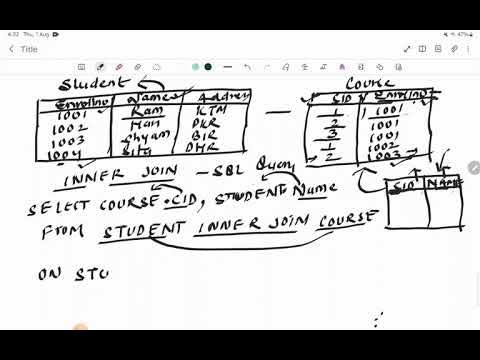 4:32 Thu, 1 Aug
47%
Title
Student
Course
Enrollno Name Address
1001 Ram KTM
1002 Hari PKR
1003 Shyam BIR
1004 Sita DHR
SID Enrollno
1 1001
2 1001
3 1001
1 1002
2 1003
INNER JOIN - SQL Query
SID NAME
SELECT COURSE.CID, STUDENT Name
FROM STUDENT INNER JOIN COURSE
ON STU